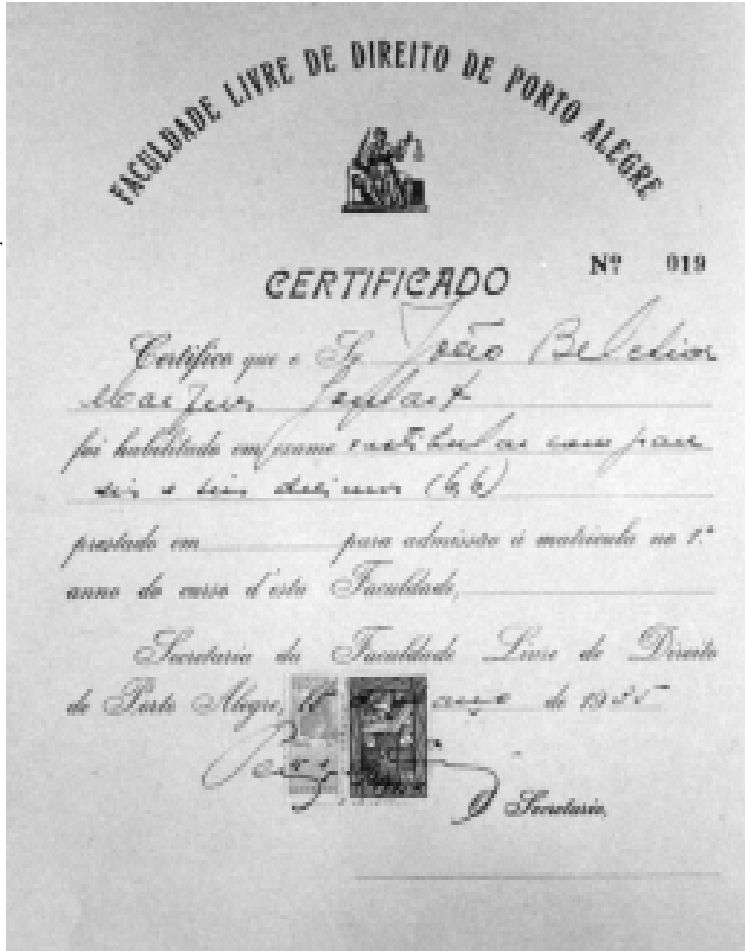 FACULDADE LIVRE DE DIREITO DE PORTO ALEGRE
Nº 019
CERTIFICADO
Certifico que o Sr. João Belchior
Marques Goulart
foi habilitado em exame vestibular com grau
seis e seis decimos (6,6)
prestado em para admissão á matricula no 1.º
anno do curso d'esta Faculdade,
Secretaria da Faculdade Livre de Direito
de Porto Alegre, de março de 1935
O Secretario,